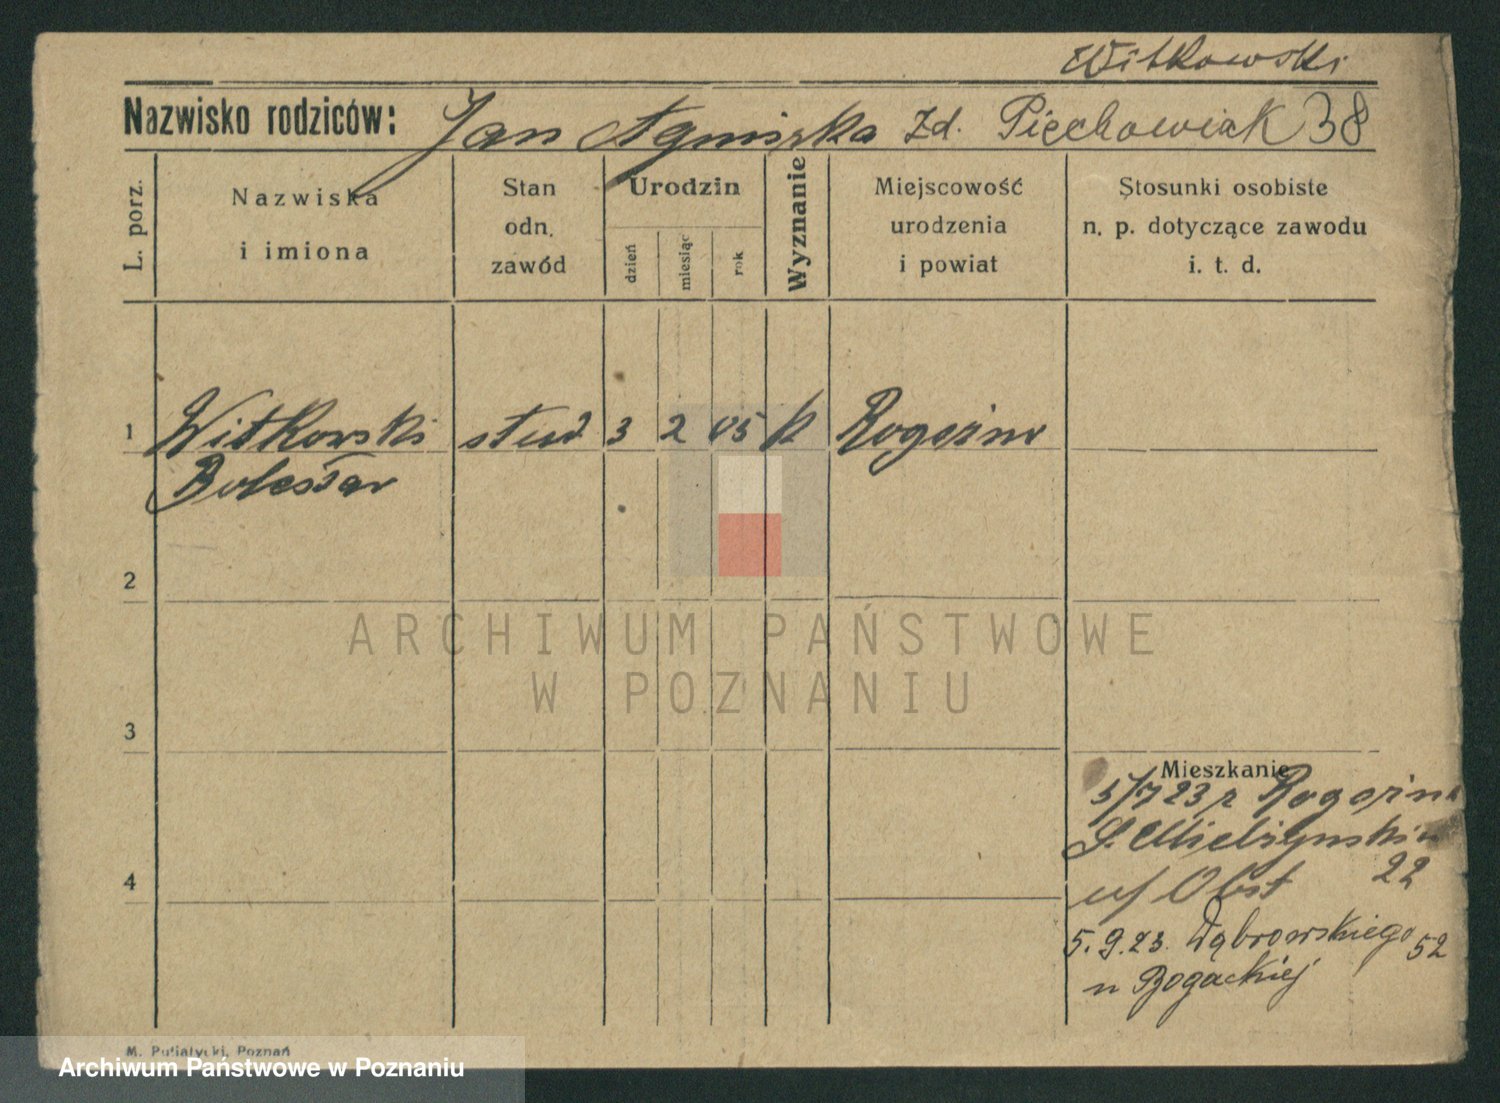 Witkowski
Nazwisko rodziców: Jan Agniszka Zd. Piechowiak 38
L. porz.
Nazwiska
i imiona
Stan
odn.
zawód
Urodzin
dzień
miesiąc
rok
Wyznanie
Miejscowość
urodzenia
i powiat
Stosunki osobiste
n. p. dotyczące zawodu
i. t. d.
1 Witkowski stud 3 2 05 k Rogoźno
Bolesław
2
ARCHIWUM PAŃSTWOWE
W POZNANIU
3
Mieszkanie
5/7 23 z Rogoźna
S. Mielżyńskiego
22
u/ Obst
4
5. 9. 23. Dąbrowskiego 52
u Bogackiej
M. Putiatycki, Poznań
Archiwum Państwowe w Poznaniu